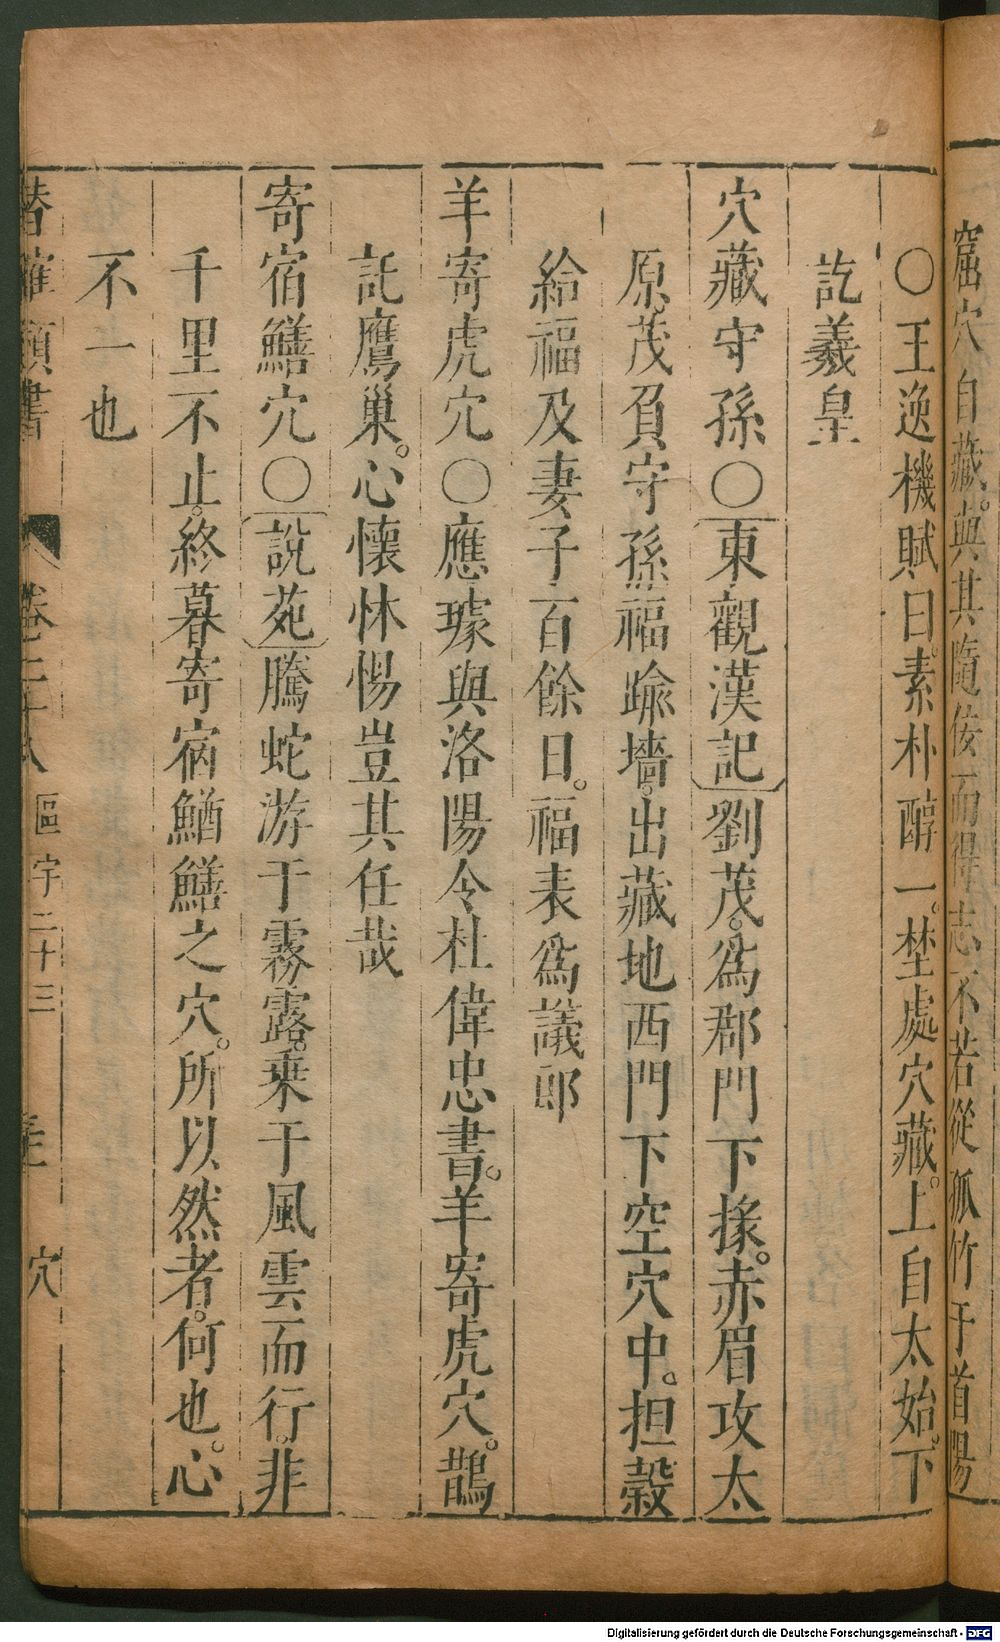 窟穴自藏。與其隨佞而得志不若從孤竹于首陽
〇王逸機賦曰。素朴醇一。埜處穴藏。上自太始。下
訖羲皇
穴藏守孫〇東觀漢記劉茂。爲郡門下掾。赤眉攻太
原。茂負守孫福踰墻。出藏地西門下空穴中。担穀
給福及妻子百餘日。福表爲議郎
羊寄虎穴〇應璩與洛陽令杜偉忠書。羊寄虎穴。鵲
託鷹巢。心懷怵惕豈其任哉
寄宿鱔穴〇說苑騰蛇游于霧露。乗于風雲而行。非
千里不止。終暮寄宿鰌鱔之穴。所以然者。何也。心
不一也
類書 卷二十八 區宇二十三 穴
Digitalisierung gefördert durch die Deutsche Forschungsgemeinschaft - DFG